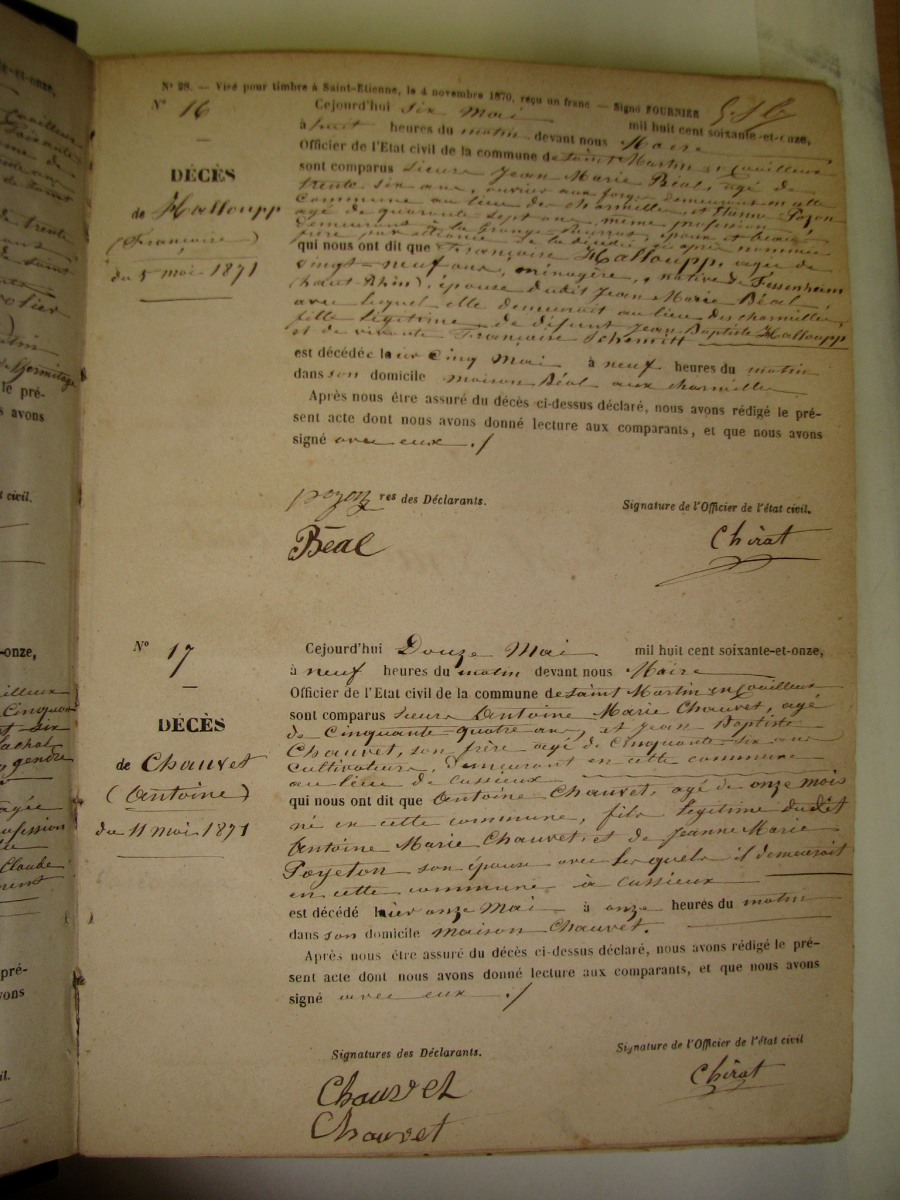 N° 28. — Visé pour timbre à Saint-Etienne, le 4 novembre 1870, reçu un franc — Signé FOURNIER
N° 16
DÉCÈS
de Halloupp
(Françoise)
du 5 mai 1871
Cejourd'hui six Mai mil huit cent soixante-et-onze,
à huit heures du matin devant nous Maire
Officier de l'Etat civil de la commune de Saint Martin en Coailleux
sont comparus Sieurs Jean Marie Béal, agé de
trente six ans, ouvrier aux forges demeurant en cette
Commune au lieu des charmilles, et
agé de quarante sept ans, même profession
demeurant à la Grange
de la décédée ci après nommée
qui nous ont dit que Françoise Halloupp, agée de
vingt-neuf ans, ménagère, native de Fessenheim
(haut-Rhin), épouse dudit Jean Marie Béal
avec lequel elle demeurait au lieu des charmilles,
fille légitime de défunt Jean Baptiste Halloupp
et de vivante Françoise Schmitt
est décédée hier Cinq Mai à neuf heures du matin
dans son domicile maison Béal aux charmilles
Après nous être assuré du décès ci-dessus déclaré, nous avons rédigé le pré-
sent acte dont nous avons donné lecture aux comparants, et que nous avons
signé avec eux ./
res des Déclarants.
Signature de l'Officier de l'état civil.
Béal
Chirat
N° 17
DÉCÈS
de Chauvet
(Antoine)
du 11 mai 1871
Cejourd'hui Douze Mai mil huit cent soixante-et-onze,
à neuf heures du matin devant nous Maire
Officier de l'Etat civil de la commune de Saint Martin en Coailleux
sont comparus Sieurs Antoine Marie Chauvet, agé
de Cinquante-quatre ans, et Jean Baptiste
Chauvet, son frère agé de Cinquante-six ans
Cultivateurs, demeurant en cette commune
au lieu de Cussieux
qui nous ont dit que Antoine Chauvet, agé de onze mois
né en cette commune, fils légitime dudit
Antoine Marie Chauvet, et de Jeanne Marie
Poyeton son épouse avec lesquels il demeurait
en cette commune à Cussieux
est décédé hier onze Mai à onze heures du matin
dans son domicile maison Chauvet.
Après nous être assuré du décès ci-dessus déclaré, nous avons rédigé le pré-
sent acte dont nous avons donné lecture aux comparants, et que nous avons
signé avec eux ./
Signatures des Déclarants.
Signature de l'Officier de l'état civil
Chauvet
Chirat
Chauvet